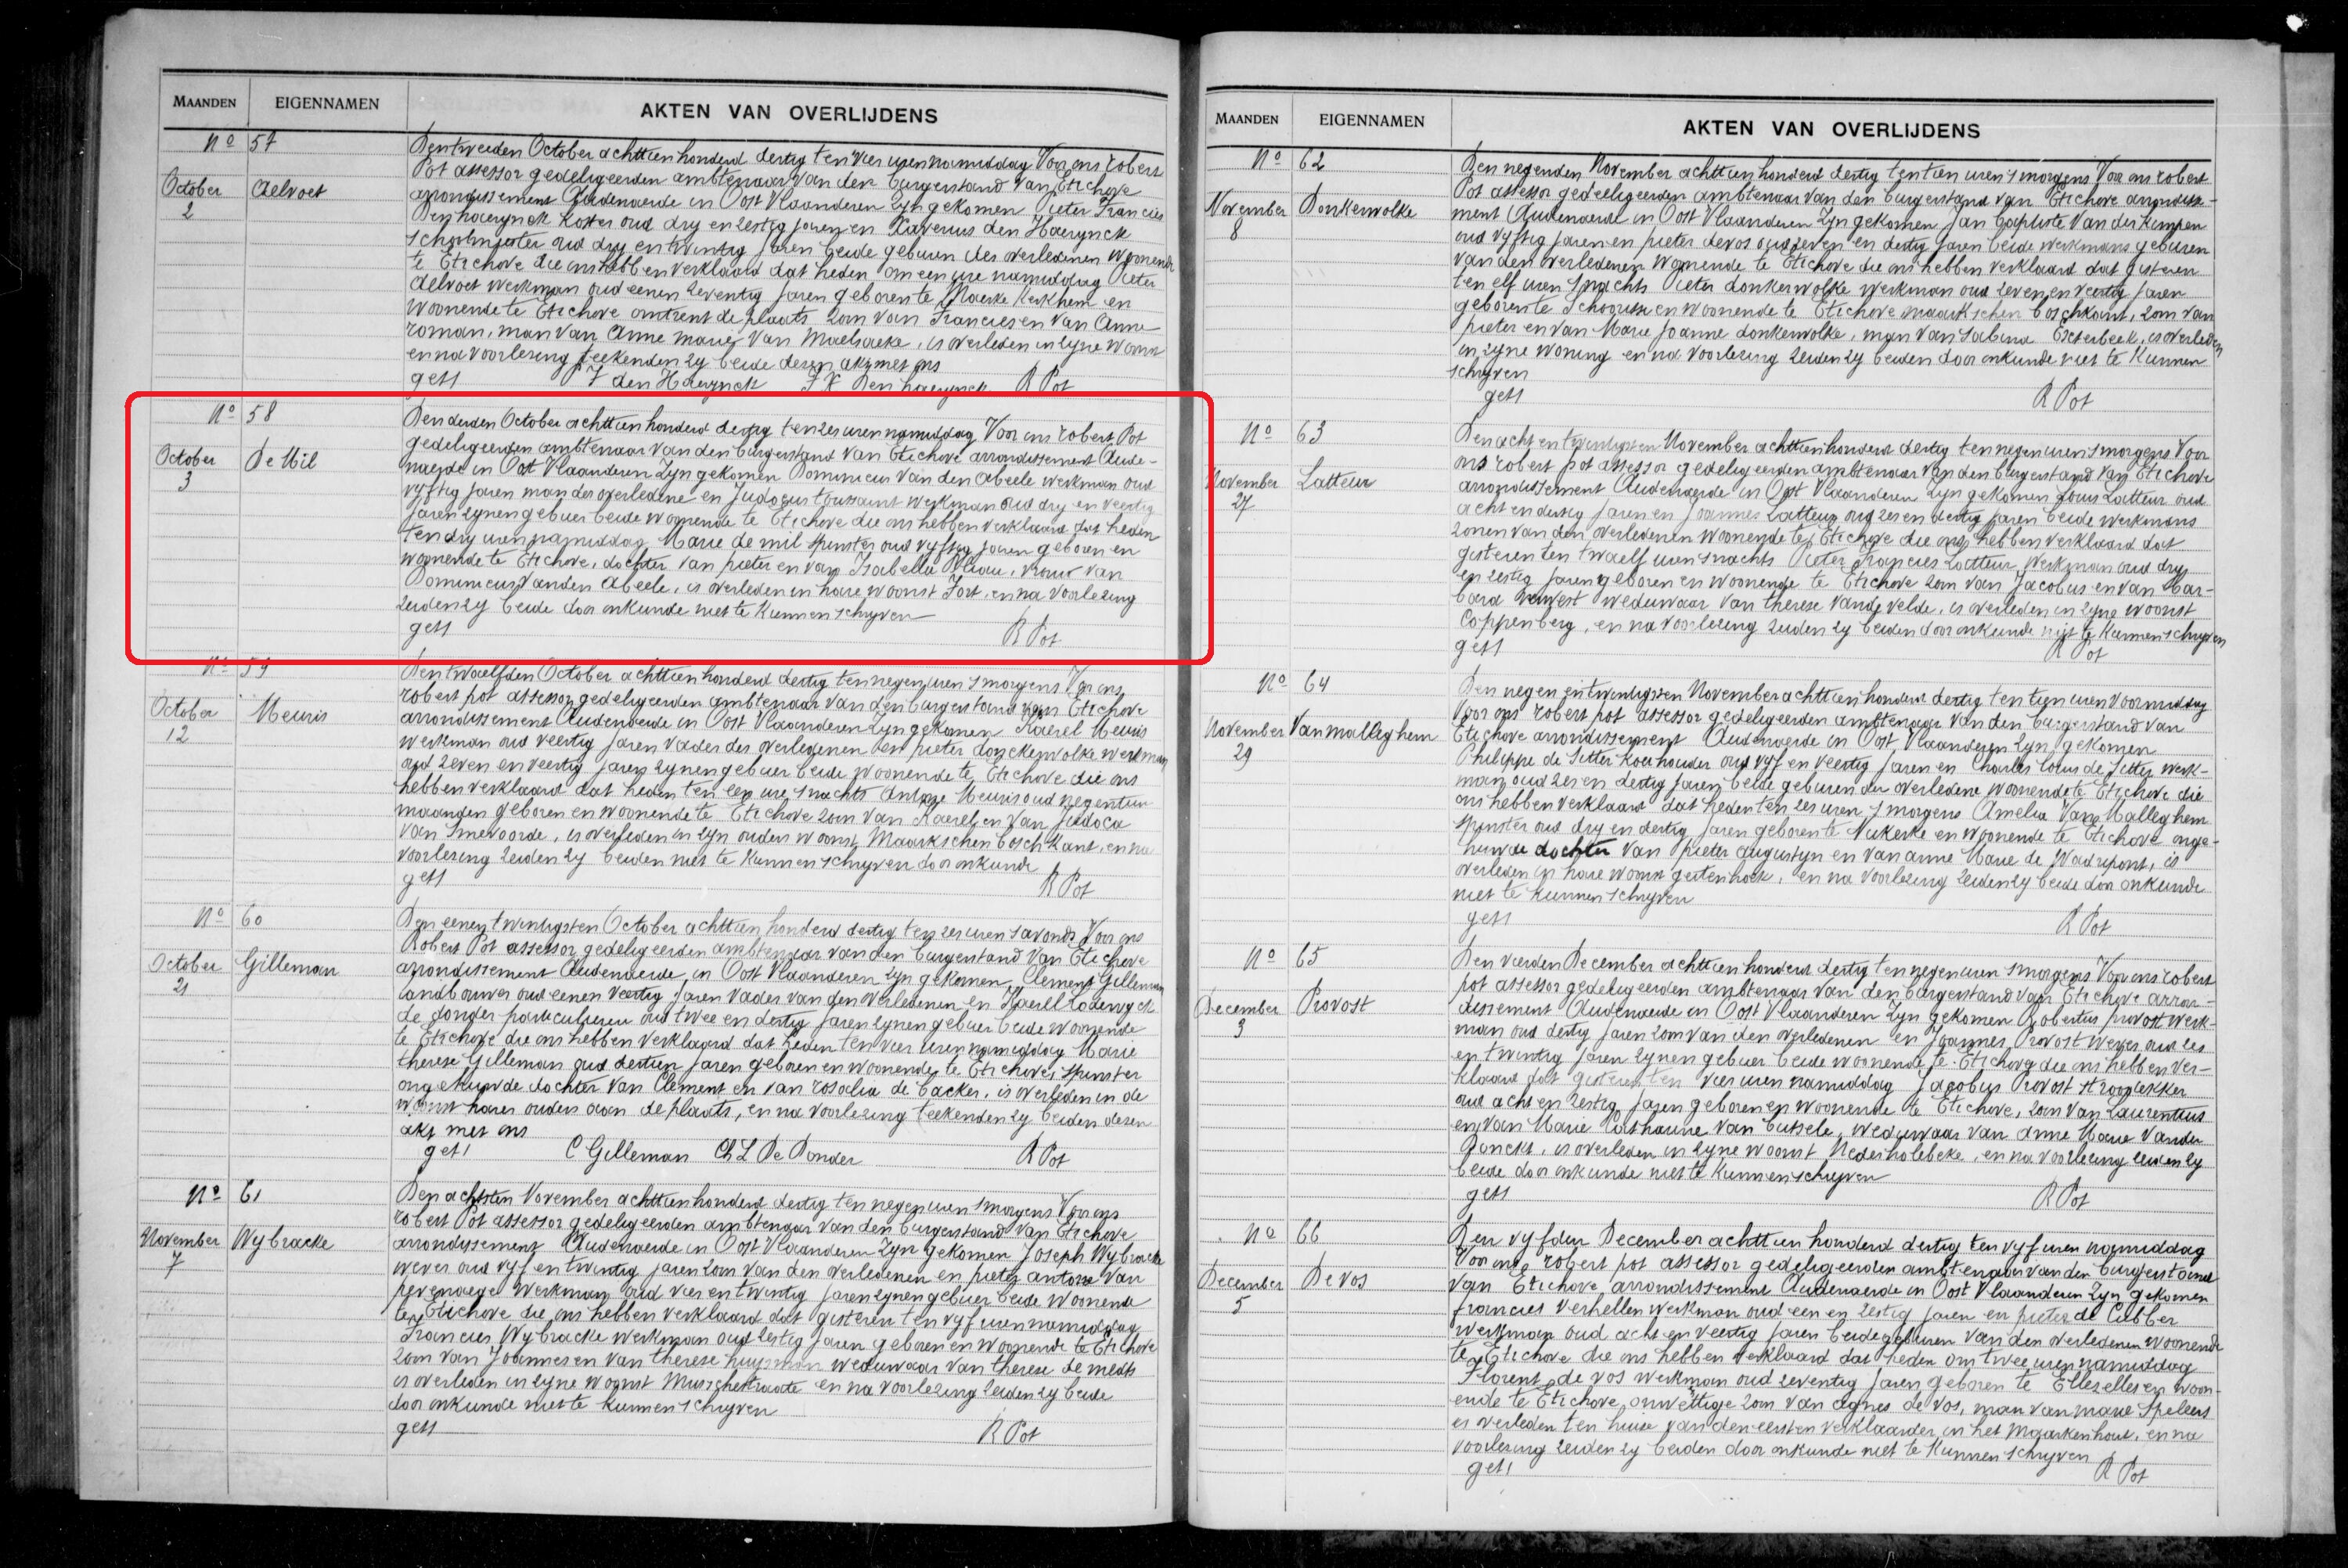 MAANDEN EIGENNAMEN AKTEN VAN OVERLIJDENS
No 57
October 2 Aelvoet
Den tweeden October achttien honderd dertig ten vier uren namiddag Voor ons robert
Pot assessor gedeligeerden ambtenaar van den burgerstand van Etichove
arrondissement Audenaerde in Oost Vlaanderen zyn gekomen Pieter Francies
Den haerynck koster oud dry en zestig jaren en Xaverius den Haerynck
schoolmeester oud dry en twintig jaren beide geburen des overledenen woonende
te Etichove die ons hebben verklaard dat heden om een ure namiddag Pieter
Aelvoet werkman oud eenen zeventig jaren geboren te Maerke Kerkhem en
woonende te Etichove omtrent de plaats zoon van Francies en van Anne
roman, man van Anne marie Van Maelsaeke, is overleden in zyne woonst
en na voorlezing teekenden zy beide dezen akt met ons
gett P F den Haerynck F X Den haerynck R Pot
No 58
October 3 De Mil
Den derden October achttien honderd dertig ten zes uren namiddag Voor ons robert Pot
gedeligeerden ambtenaar van den burgerstand van Etichove arrondissement Aude-
naerde in Oost Vlaanderen zyn gekomen Dominicus Van den Abeele werkman oud
vyftig jaren man der overledene en Judocus toussaint werkman oud dry en veertig
jaren zynen gebuer beide woonende te Etichove die ons hebben verklaard dat heden
ten dry uren namiddag Marie de mil spinster oud vyftig jaren geboren en
woonende te Etichove, dochter van pieter en van Isabelle Vliau, vrouw van
Dominicus Vanden Abeele, is overleden in hare woonst Fort, en na voorlezing
zeiden zy beide door onkunde niet te kunnen schryven
gett R Pot
No 59
October 12 Meuris
Den twaelfden October achttien honderd dertig ten negen uren smorgens Voor ons
robert pot assessor gedeligeerden ambtenaar van den burgerstand van Etichove
arrondissement Audenaerde in Oost Vlaanderen zyn gekomen Kaerel Meuris
werkman oud veertig jaren vader des overledenen en pieter donckerwolke werkman
oud zeven en veertig jaren zynen gebuer beide woonende te Etichove die ons
hebben verklaard dat heden ten een ure snachts Antone Meuris oud negentien
maanden geboren en woonende te Etichove zoon van Kaerel en van Judoca
van Smevoorde, is overleden in zyn ouders woonst Maarkschen bosch kant, en na
voorlezing zeiden zy beiden niet te kunnen schryven door onkunde
gett R Pot
No 60
October 21 Gilleman
Den eenen twintigsten October achttien honderd dertig ten zes uren savonds Voor ons
Robert Pot assessor gedeligeerden ambtenaar van den burgerstand van Etichove
arrondissement Audenaerde in Oost Vlaanderen zyn gekomen Clement Gilleman
landbouwer oud eenen veertig jaren vader van den overledenen en Kaerel Lodewyck
de donder particulieren oud twee en dertig jaren zynen gebuer beide woonende
te Etichove die ons hebben verklaard dat heden ten vier uren namiddag Marie
therese Gilleman oud dertien jaren geboren en woonende te Etichove, spinster
ongehuwde dochter van Clement en van rosalia de backer, is overleden in de
woonst harer ouders aan de plaats, en na voorlezing teekenden zy beiden dezen
akt met ons
get! C Gilleman Ch L De Donder R Pot
No 61
November 7 Wybracke
Den achtsten November achttien honderd dertig ten negen uren smorgens Voor ons
robert Pot assessor gedeligeerden ambtenaar van den burgerstand van Etichove
arrondissement Audenaerde in Oost Vlaanderen zyn gekomen Joseph Wybracke
wever oud vyf en twintig jaren zoon van den overledenen en pieter antone Van
pevenaege werkman oud vier en twintig jaren zynen gebuer beide woonende
te Etichove die ons hebben verklaard dat gisteren ten vyf uren namiddag
Francies Wybracke werkman oud zestig jaren geboren en woonende te Etichove
zoon van Joannes en van therese huysman weduwaar van therese de medts
is overleden in zyne woonst Musschestraate en na voorlezing zeiden zy beide
door onkunde niet te kunnen schryven
gett R Pot
MAANDEN EIGENNAMEN AKTEN VAN OVERLIJDENS
No 62
November 8 Donkerwolke
Den negenden November achttien honderd dertig ten tien uren smorgens Voor ons robert
Pot assessor gedeeligeerden ambtenaar van den burgerstand van Etichove arrondisse-
ment Audenaerde in Oost Vlaanderen zyn gekomen Jan baptiste Van der kimpen
oud vyftig jaren en pieter devos oud zeven en dertig jaren beide werkmans geburen
van den overledenen woonende te Etichove die ons hebben verklaard dat gisteren
ten elf uren snachts Pieter donkerwolke werkman oud zeven en veertig jaren
geboren te Schoorisse en woonende te Etichove maarkschen boschkant, zoon van
pieter en van Marie Joanne donkerwolke, man van Sabina Eesterbeek, is overleden
in zyne woning en na voorlezing zeiden zy beiden door onkunde niet te kunnen
schryven
gett R Pot
No 63
November 27 Latteur
Den acht en twintigsten November achttien honderd dertig ten negen uren smorgens Voor
ons robert pot assessor gedeligeerden ambtenaar van den burgerstand van Etichove
arrondissement Audenaerde in Oost Vlaanderen zyn gekomen Louis Latteur oud
acht en dertig jaren en Joannes Latteur oud zes en dertig jaren beide werkmans
zonen van den overledenen woonende te Etichove die ons hebben verklaard dat
gisteren ten twaelf uren snachts Pieter Francies Latteur werkman oud dry
en zestig jaren geboren en woonende te Etichove zoon van Jacobus en van Bar-
bara verwest weduwaar van therese vande velde, is overleden in zyne woonst
Coppenberg, en na voorlezing zeiden zy beiden door onkunde niet te kunnen schryven
gett R Pot
No 64
November 29 Van malleghem
Den negen en twintigsten November achttien honderd dertig ten tien uren voormiddag
Voor ons robert pot assessor gedeligeerden ambtenaar van den burgerstand van
Etichove arrondissement Audenaerde in Oost Vlaanderen zyn gekomen
Philippe de Sitter koeihouder oud vyf en veertig jaren en Charles Louis de Sitter werk-
man oud zes en dertig jaren beide geburen der overledene woonende te Etichove die
ons hebben verklaard dat heden ten zes uren smorgens Amelia Van Malleghem
spinster oud dry en dertig jaren geboren te Nukerke en woonende te Etichove onge-
huwde dochter van pieter augustyn en van anne Marie de Wadripont, is
overleden in hare woonst geitenhoek, en na voorlezing zeiden zy beide door onkunde
niet te kunnen schryven
gett R Pot
No 65
December 3 Provost
Den vierden December achttien honderd dertig ten negen uren smorgens Voor ons robert
pot assessor gedeligeerden ambtenaar van den burgerstand van Etichove arron-
dissement Audenaerde in Oost Vlaanderen zyn gekomen Robertus provost werk-
man oud dertig jaren zoon van den overledenen en Joannes Provost wever oud zes
en twintig jaren zynen gebuer beide woonende te Etichove die ons hebben ver-
klaard dat gisteren ten vier uren namiddag Jacobus Provost strooidekker
oud acht en zestig jaren geboren en woonende te Etichove, zoon van Laurentius
en van Marie Catharine Van butsele, weduwaar van Anne Marie Vander
Donckt, is overleden in zyne woonst Nederholbeke, en na voorlezing zeiden zy
beide door onkunde niet te kunnen schryven
gett R Pot
No 66
December 5 De vos
Den vyfden December achttien honderd dertig ten vyf uren namiddag
Voor ons robert pot assessor gedeligeerden ambtenaar van den burgerstand
van Etichove arrondissement Audenaerde in Oost Vlaanderen zyn gekomen
francies verhellen werkman oud een en zestig jaren en pieter de Cubber
werkman oud acht en veertig jaren beide geburen van den overledenen woonende
te Etichove die ons hebben verklaard dat heden om twee uren namiddag
Florent de vos werkman oud zeventig jaren geboren te Ellezelles en woon-
ende te Etichove onwettige zoon van Agnes de vos, man van marie Speleers
is overleden ten huise van den eersten verklaarder in het Maarkenhout, en na
voorlezing zeiden zy beiden door onkunde niet te kunnen schryven
get! R Pot